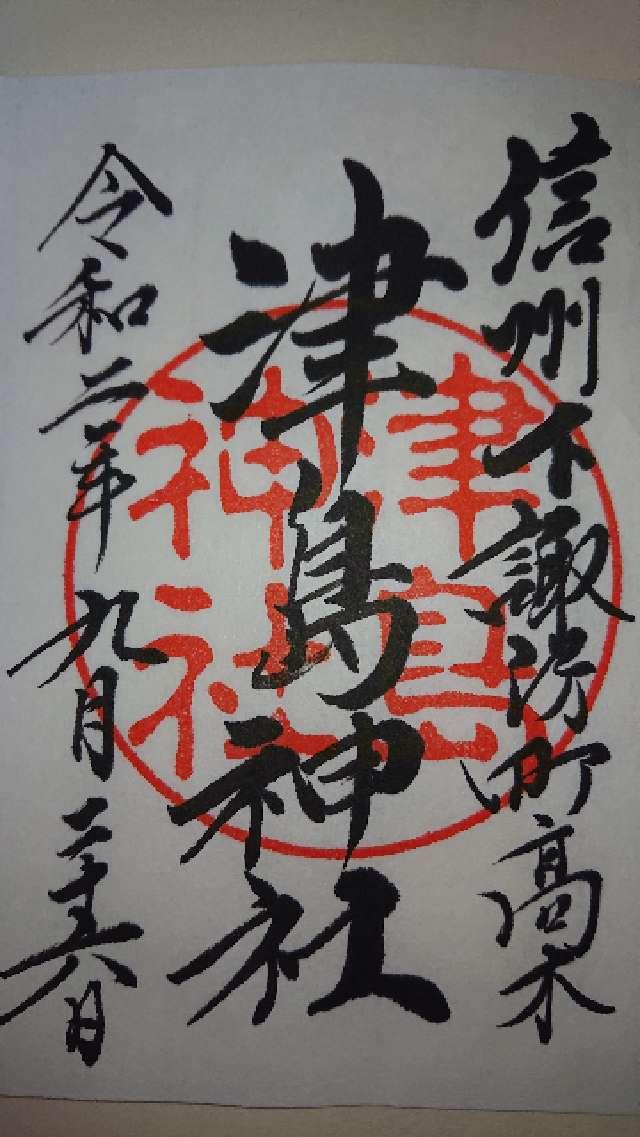 信州下諏訪町高木
津島神社
津島神社
令和二年九月二十六日